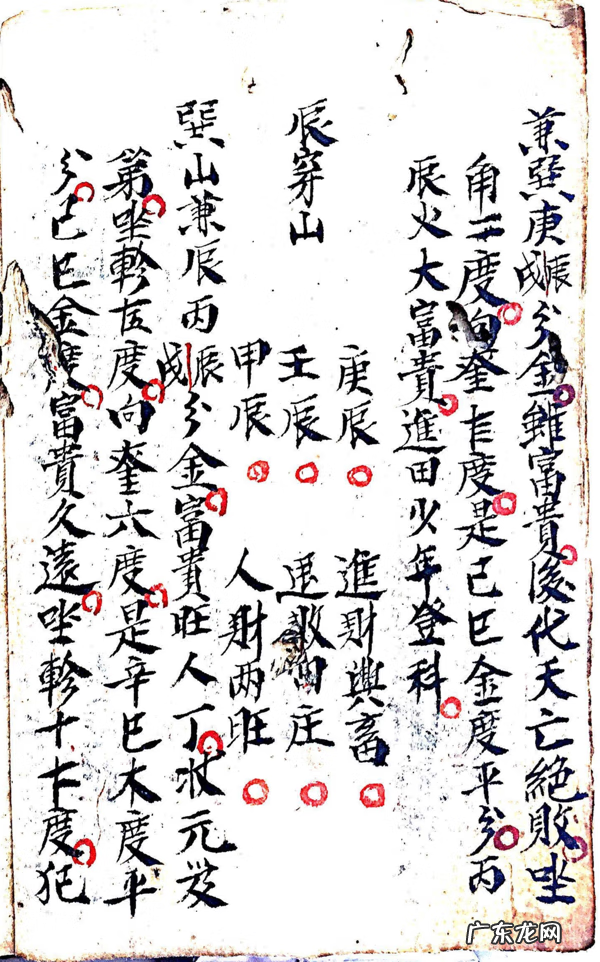 兼巽庚辰戌分金雖富貴後代夭亡絕敗坐
角二度向奎七度是己巳金度平分丙
辰火大富貴進田少年登科
辰穿山
庚辰 進財興畜
壬辰 退敗田庄
甲辰 人財两旺
巽山兼辰丙辰戌分金富貴旺人丁状元发
第坐軫度向奎六度是辛巳木度平
分己巳金度富貴久遠坐軫十七度犯
广东龙网